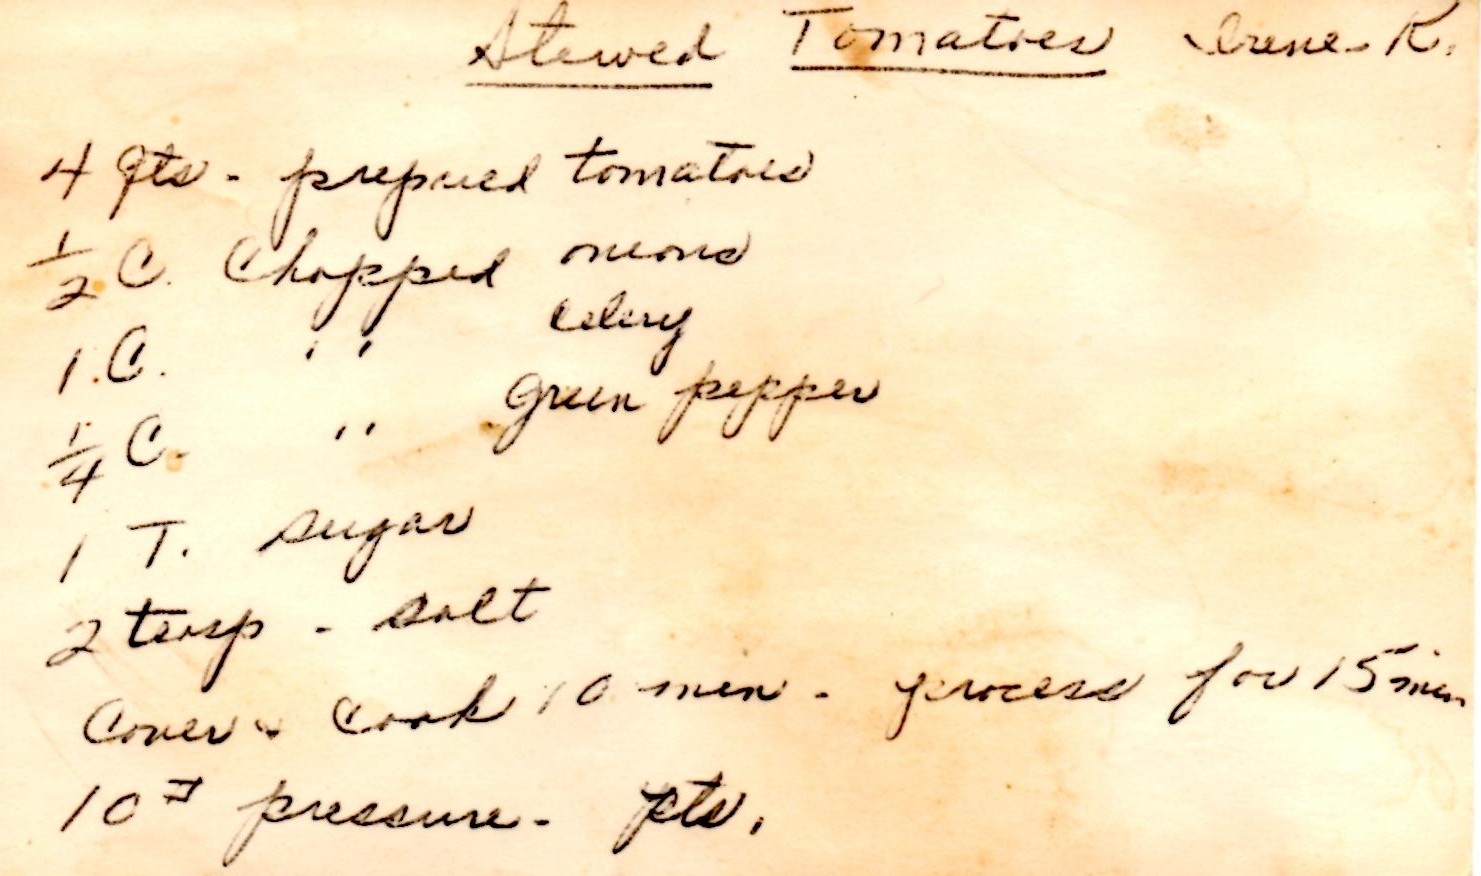 Stewed Tomatoes Irene R.
4 qts - prepared tomatoes
1/2 C. Chopped onions
1 C. " celery
1/4 C. " green pepper
1 T. sugar
2 teasp - salt
Cover & cook 10 min - process for 15 min
10# pressure - pts.